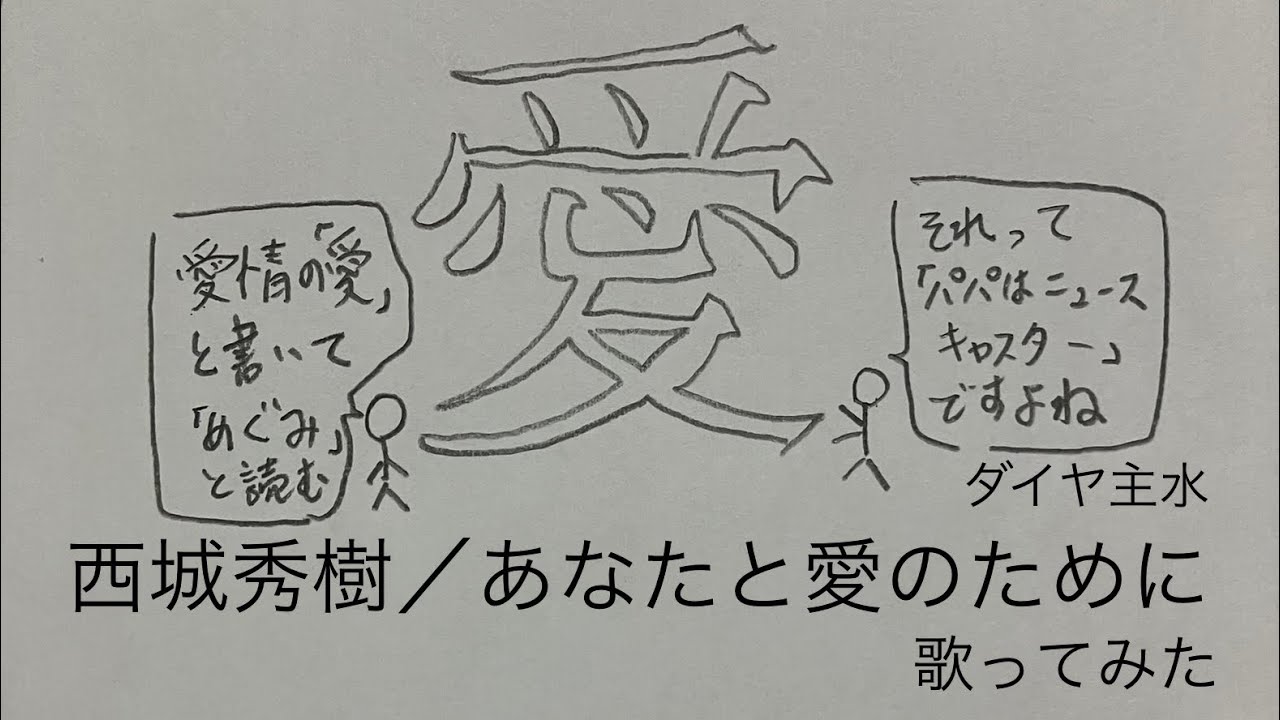 愛
愛情の「愛」
と書いて
「めぐみ」
と読む
それって
「パパはニュース
キャスター」
ですよね
ダイヤ主水
西城秀樹／あなたと愛のために
歌ってみた